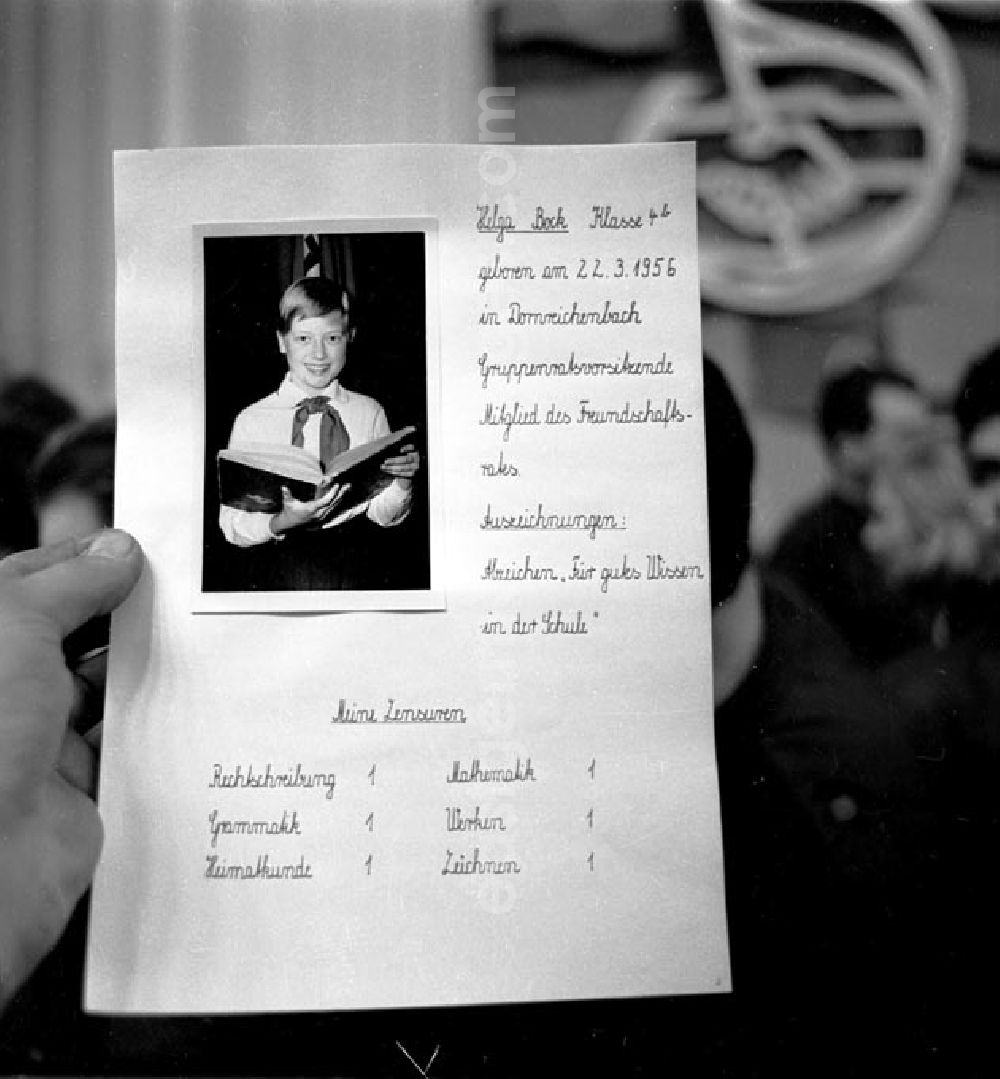 Helga Bock Klasse 4b
geboren am 22.3.1956
in Dornreichenbach
Gruppenratsvorsitzende
Mitglied des Freundschafts-
rates.
Auszeichnungen:
Abzeichen „Für gutes Wissen
in der Schule"
Meine Zensuren
Rechtschreibung 1 Mathematik 1
Grammatik 1 Werken 1
Heimatkunde 1 Zeichnen 1